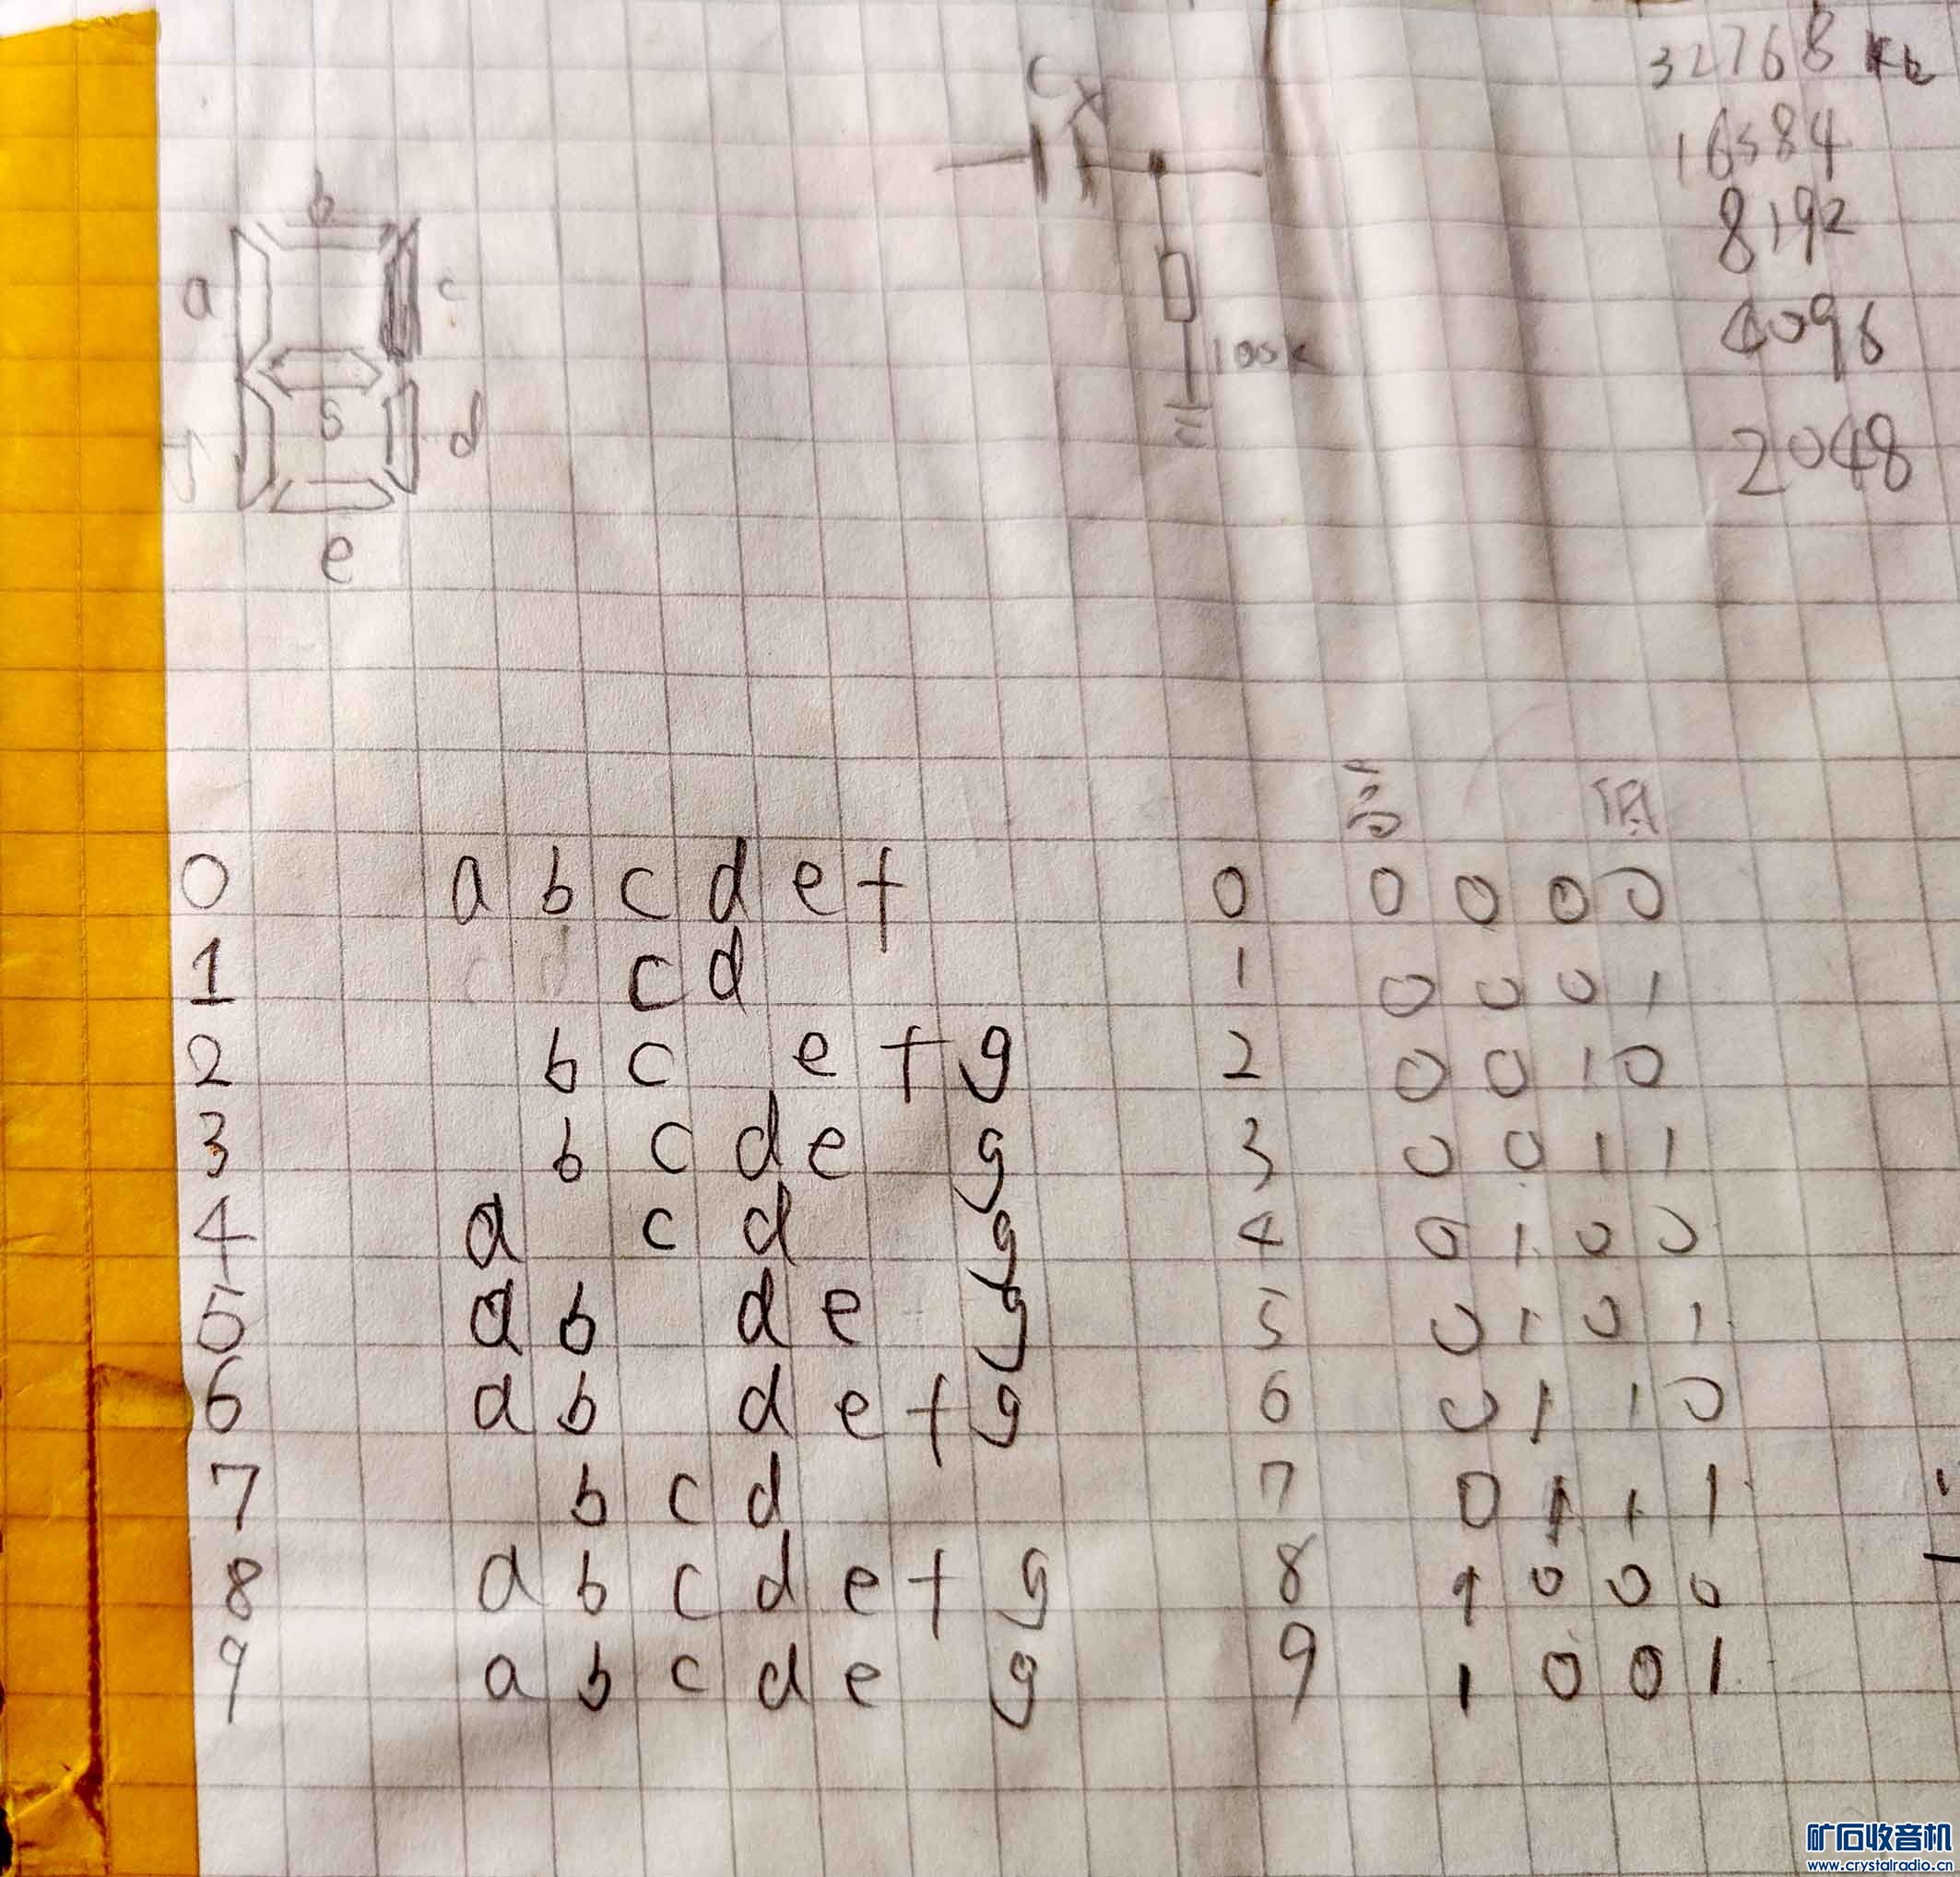 32768 Kb
16384
8192
4096
2048
Cx
100K
b
a c
g
d
e
高 低
0 a b c d e f 0 0 0 0 0
1 c d 1 0 0 0 1
2 b c e f g 2 0 0 1 0
3 b c d e g 3 0 0 1 1
4 a c d g 4 0 1 0 0
5 a b d e g 5 0 1 0 1
6 a b d e f g 6 0 1 1 0
7 b c d 7 0 1 1 1
8 a b c d e f g 8 1 0 0 0
9 a b c d e g 9 1 0 0 1
矿石收音机
www.crystalradio.cn